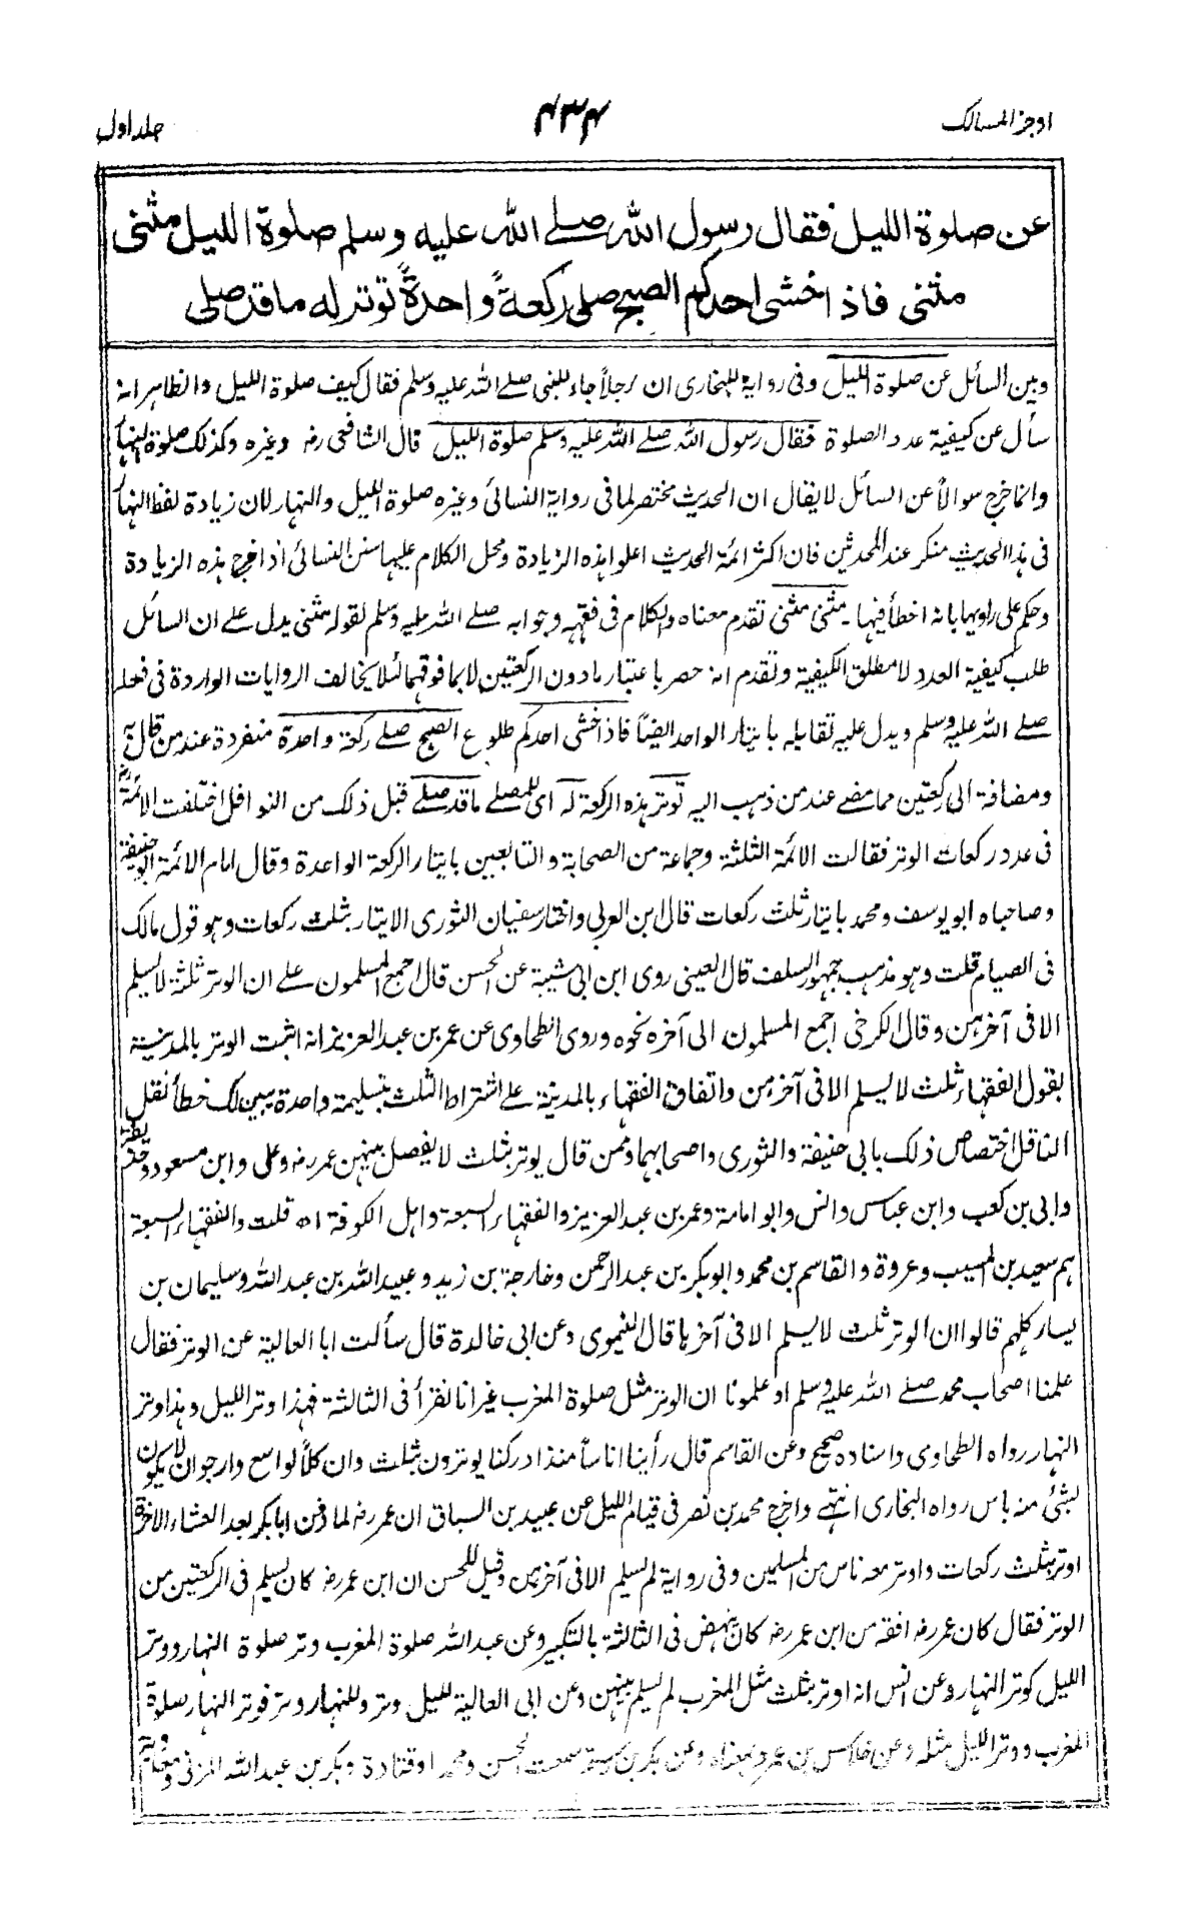 اوجز المسالك
۴۳۴
جلد اول
عن صلوة الليل فقال رسول الله صلے الله عليه وسلم صلوة الليل مثنى
مثنى فاذا خشى احدكم الصبح صلى ركعةً واحدةً توتر له ما قد صلى
وبين السائل عن صلوة الليل وفى رواية للبخارى ان رجلاً جاء للنبى صلے الله عليه وسلم فقال كيف صلوة الليل والظاهر انه
سأل عن كيفية عدد الصلوة فقال رسول الله صلے الله عليه وسلم صلوة الليل قال الشافعى رضـ وغيره وكذلك صلوة النهار
وانما خرج سوالاً عن السائل لا يقال ان الحديث مختصر لما فى رواية النسائى وغيره صلوة الليل والنهار لان زيادة لفظ النهار
فى هذا الحديث منكر عند المحدثين فان اكثر ائمة الحديث اعلوا هذه الزيادة ومحل الكلام عليها سنن النسائى اذ اخرج هذه الزيادة
وحكم على راويها بانه اخطأ فيها ـ مثنى مثنى تقدم معناه والكلام فى فقهه وجوابه صلے الله عليه وسلم لقوله مثنى يدل علے ان السائل
طلب كيفية العدد لا مطلق الكيفية وتقدم انه حصر باعتبار ما دون الركعتين لا بما فوقهما لئلا يخالف الروايات الواردة فى فعله
صلے الله عليه وسلم ويدل عليه تقابله بايتار الواحد ايضاً فاذا خشى احدكم طلوع الصبح صلے ركعة واحدة منفردة عند من قال به
ومضافة الى ركعتين مما مضے عند من ذهب اليه توتر هذه الركعة له اى للمصلے ما قد صلے قبل ذلك من النوافل اختلفت الائمة
فى عدد ركعات الوتر فقالت الائمة الثلثة وجماعة من الصحابة والتابعين بايتار الركعة الواحدة وقال امام الائمة ابو حنيفة
وصاحباه ابو يوسف ومحمد بايتار ثلث ركعات قال ابن العربى واختار سفيان الثورى الايتار بثلث ركعات وهو قول مالك
فى الصيام قلت وهو مذهب جمهور السلف قال العينى روى ابن ابى شيبة عن الحسن قال اجمع المسلمون علے ان الوتر ثلثة لا يسلم
الا فى آخرهن وقال الكرخى اجمع المسلمون الى آخره نحوه وروى الطحاوى عن عمر بن عبد العزيز انه اثبت الوتر بالمدينة
بقول الفقهاء ثلث لا يسلم الا فى آخرهن واتفاق الفقهاء بالمدينة علے اشتراط الثلث بتسليمة واحدة يبين لك خطأ نقل
الناقل اختصاص ذلك بابى حنيفة والثورى واصحابهما وممن قال يوتر بثلث لا يفصل بينهن عمر رضـ وعلى وابن مسعود وحذيفة
وابى بن كعب وابن عباس وانس وابو امامة وعمر بن عبد العزيز والفقهاء السبعة واهل الكوفة اھ قلت والفقهاء السبعة
هم سعيد بن المسيب وعروة والقاسم بن محمد وابو بكر بن عبد الرحمن وخارجة بن زيد وعبيد الله بن عبد الله وسليمان بن
يسار كلهم قالوا ان الوتر ثلث لا يسلم الا فى آخرها قال النيموى وعن ابى خالدة قال سألت ابا العالية عن الوتر فقال
علمنا اصحاب محمد صلے الله عليه وسلم او علمونا ان الوتر مثل صلوة المغرب غير انا نقرأ فى الثالثة فهذا وتر الليل وهذا وتر
النهار رواه الطحاوى واسناده صحيح وعن القاسم قال رأينا اناساً منذ ادركنا يوترون بثلث وان كلاً لواسع وارجو ان لا يكون
بشئ منه باس رواه البخارى انتهے واخرج محمد بن نصر فى قيام الليل عن عبيد بن السباق ان عمر رضـ لما دفن ابا بكر بعد العشاء الاخرة
اوتر بثلث ركعات واوتر معه ناس من المسلمين وفى رواية لم يسلم الا فى آخرهن وقيل للحسن ان ابن عمر رضـ كان يسلم فى الركعتين من
الوتر فقال كان عمر رضـ افقه من ابن عمر رضـ كان ينهض فى الثالثة بالتكبير وعن عبد الله صلوة المغرب وتر صلوة النهار ووتر
الليل كوتر النهار وعن انس انه اوتر بثلث مثل المغرب لم يسلم بينهن وعن ابى العالية لليل وتر وللنهار وتر فوتر النهار صلوة
المغرب ووتر الليل مثله وعن خلاس بن عمرو بمعناه وعن بكر بن سمعت الحسن ومحمداً وقتادة وبكر بن عبد الله المزنى ومعاوية